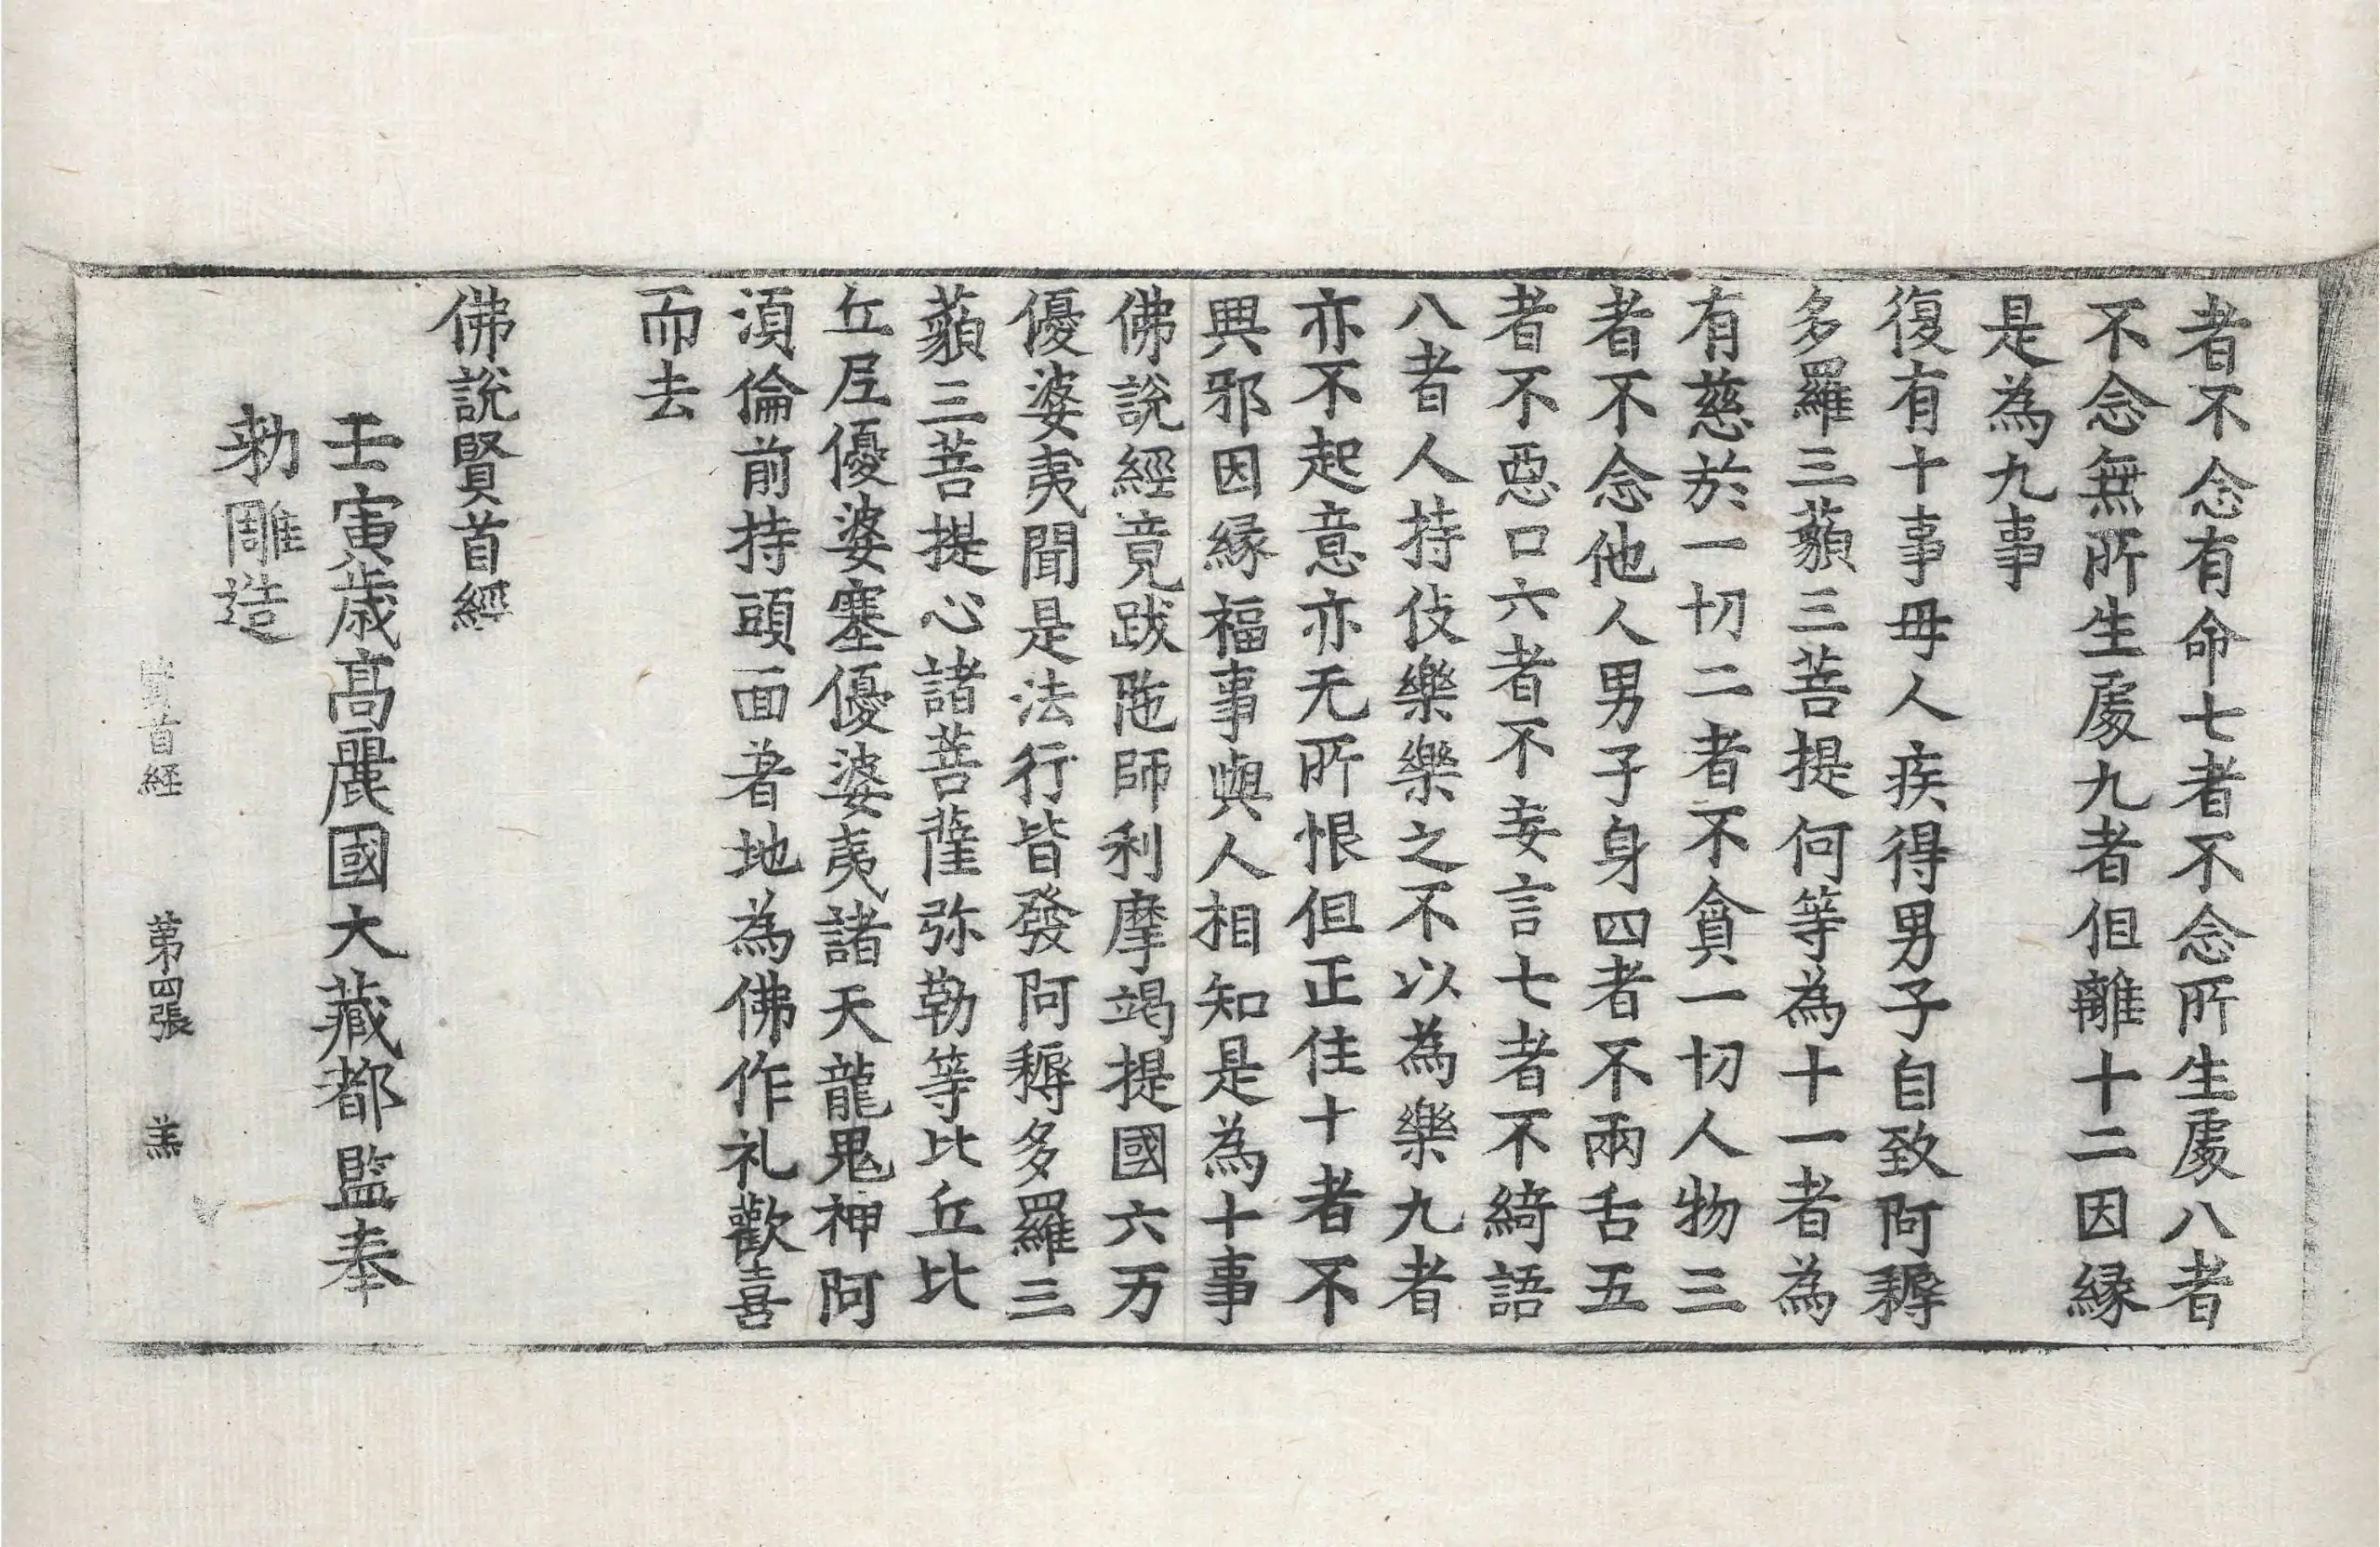 者不念有命七者不念所生處八者
不念無所生處九者但離十二因緣
是為九事
復有十事毋人疾得男子自致阿耨
多羅三藐三菩提何等為十一者為
有慈於一切二者不貪一切人物三
者不念他人男子身四者不兩舌五
者不惡口六者不妄言七者不綺語
八者人持伎樂樂之不以為樂九者
亦不起意亦无所恨但正住十者不
興邪因緣福事與人相知是為十事
佛說經竟跋陁師利摩竭提國六万
優婆夷聞是法行皆發阿耨多羅三
藐三菩提心諸菩薩弥勒等比丘比
丘尼優婆塞優婆夷諸天龍鬼神阿
須倫前持頭面著地為佛作礼歡喜
而去
佛說賢首經
壬寅歲高麗國大藏都監奉
勑雕造
賢首経 第四張 羔